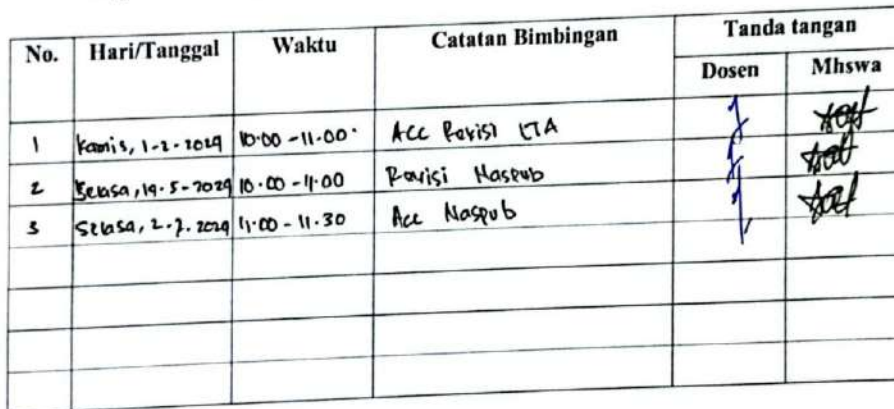 No. Hari/Tanggal Waktu Catatan Bimbingan Tanda tangan
Dosen Mhswa
1 Kamis, 1-2-2024 10.00 - 11.00 Acc Revisi LTA
2 Selasa, 14-5-2024 10.00 - 11.00 Revisi Naspub
3 Selasa, 2-7-2024 11.00 - 11.30 Acc Naspub